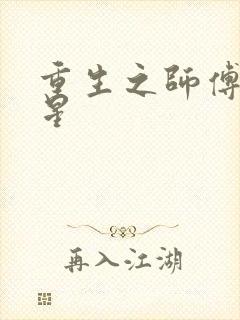 重生之師傅
星
再入江湖